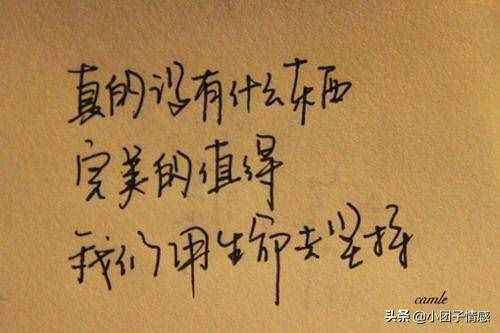 真的没有什么东西
完美的值得
我们用生命去坚持
camle
头条 @小团子情感